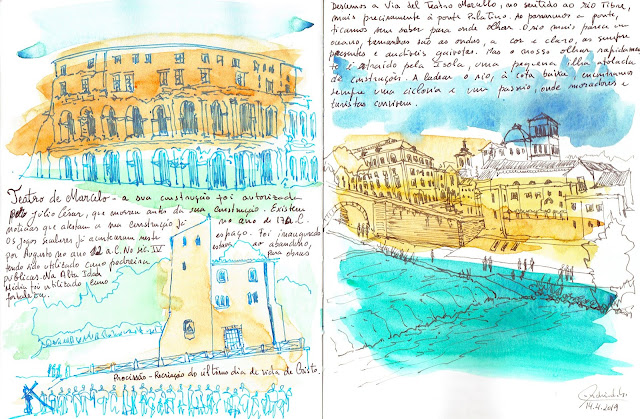 Teatro de Marcelo - a sua construção foi autorizada
pelo Júlio César, que morreu antes da sua construção. Existem
notícias que atestam a sua construção já no ano de 17 a.C.
Os Jogos Seculares já aconteceram neste espaço. Foi inaugurado
por Augusto no ano 12 a.C. No séc. IV estava ao abandono,
tendo sido utilizado como pedreira para obras
públicas. Na Alta Idade
Média foi utilizado como
fortaleza.
Procissão - Recriação do último dia de vida de Cristo.
Descemos a Via del Teatro Marcello, no sentido ao rio Tibre,
mais precisamente à ponte Palatino. Ao passarmos a ponte,
ficamos sem saber para onde olhar. O rio mais parece um
oceano, tamanhas são as ondas, a cor é claro, as sempre
presentes e audíveis gaivotas. Mas o nosso olhar rapidamente
é atraído pela Isola, uma pequena ilha atolada
de construções. A ladear o rio, à cota baixa, encontramos
sempre uma ciclovia e um passeio, onde moradores e
turistas convivem.
14.4.2019